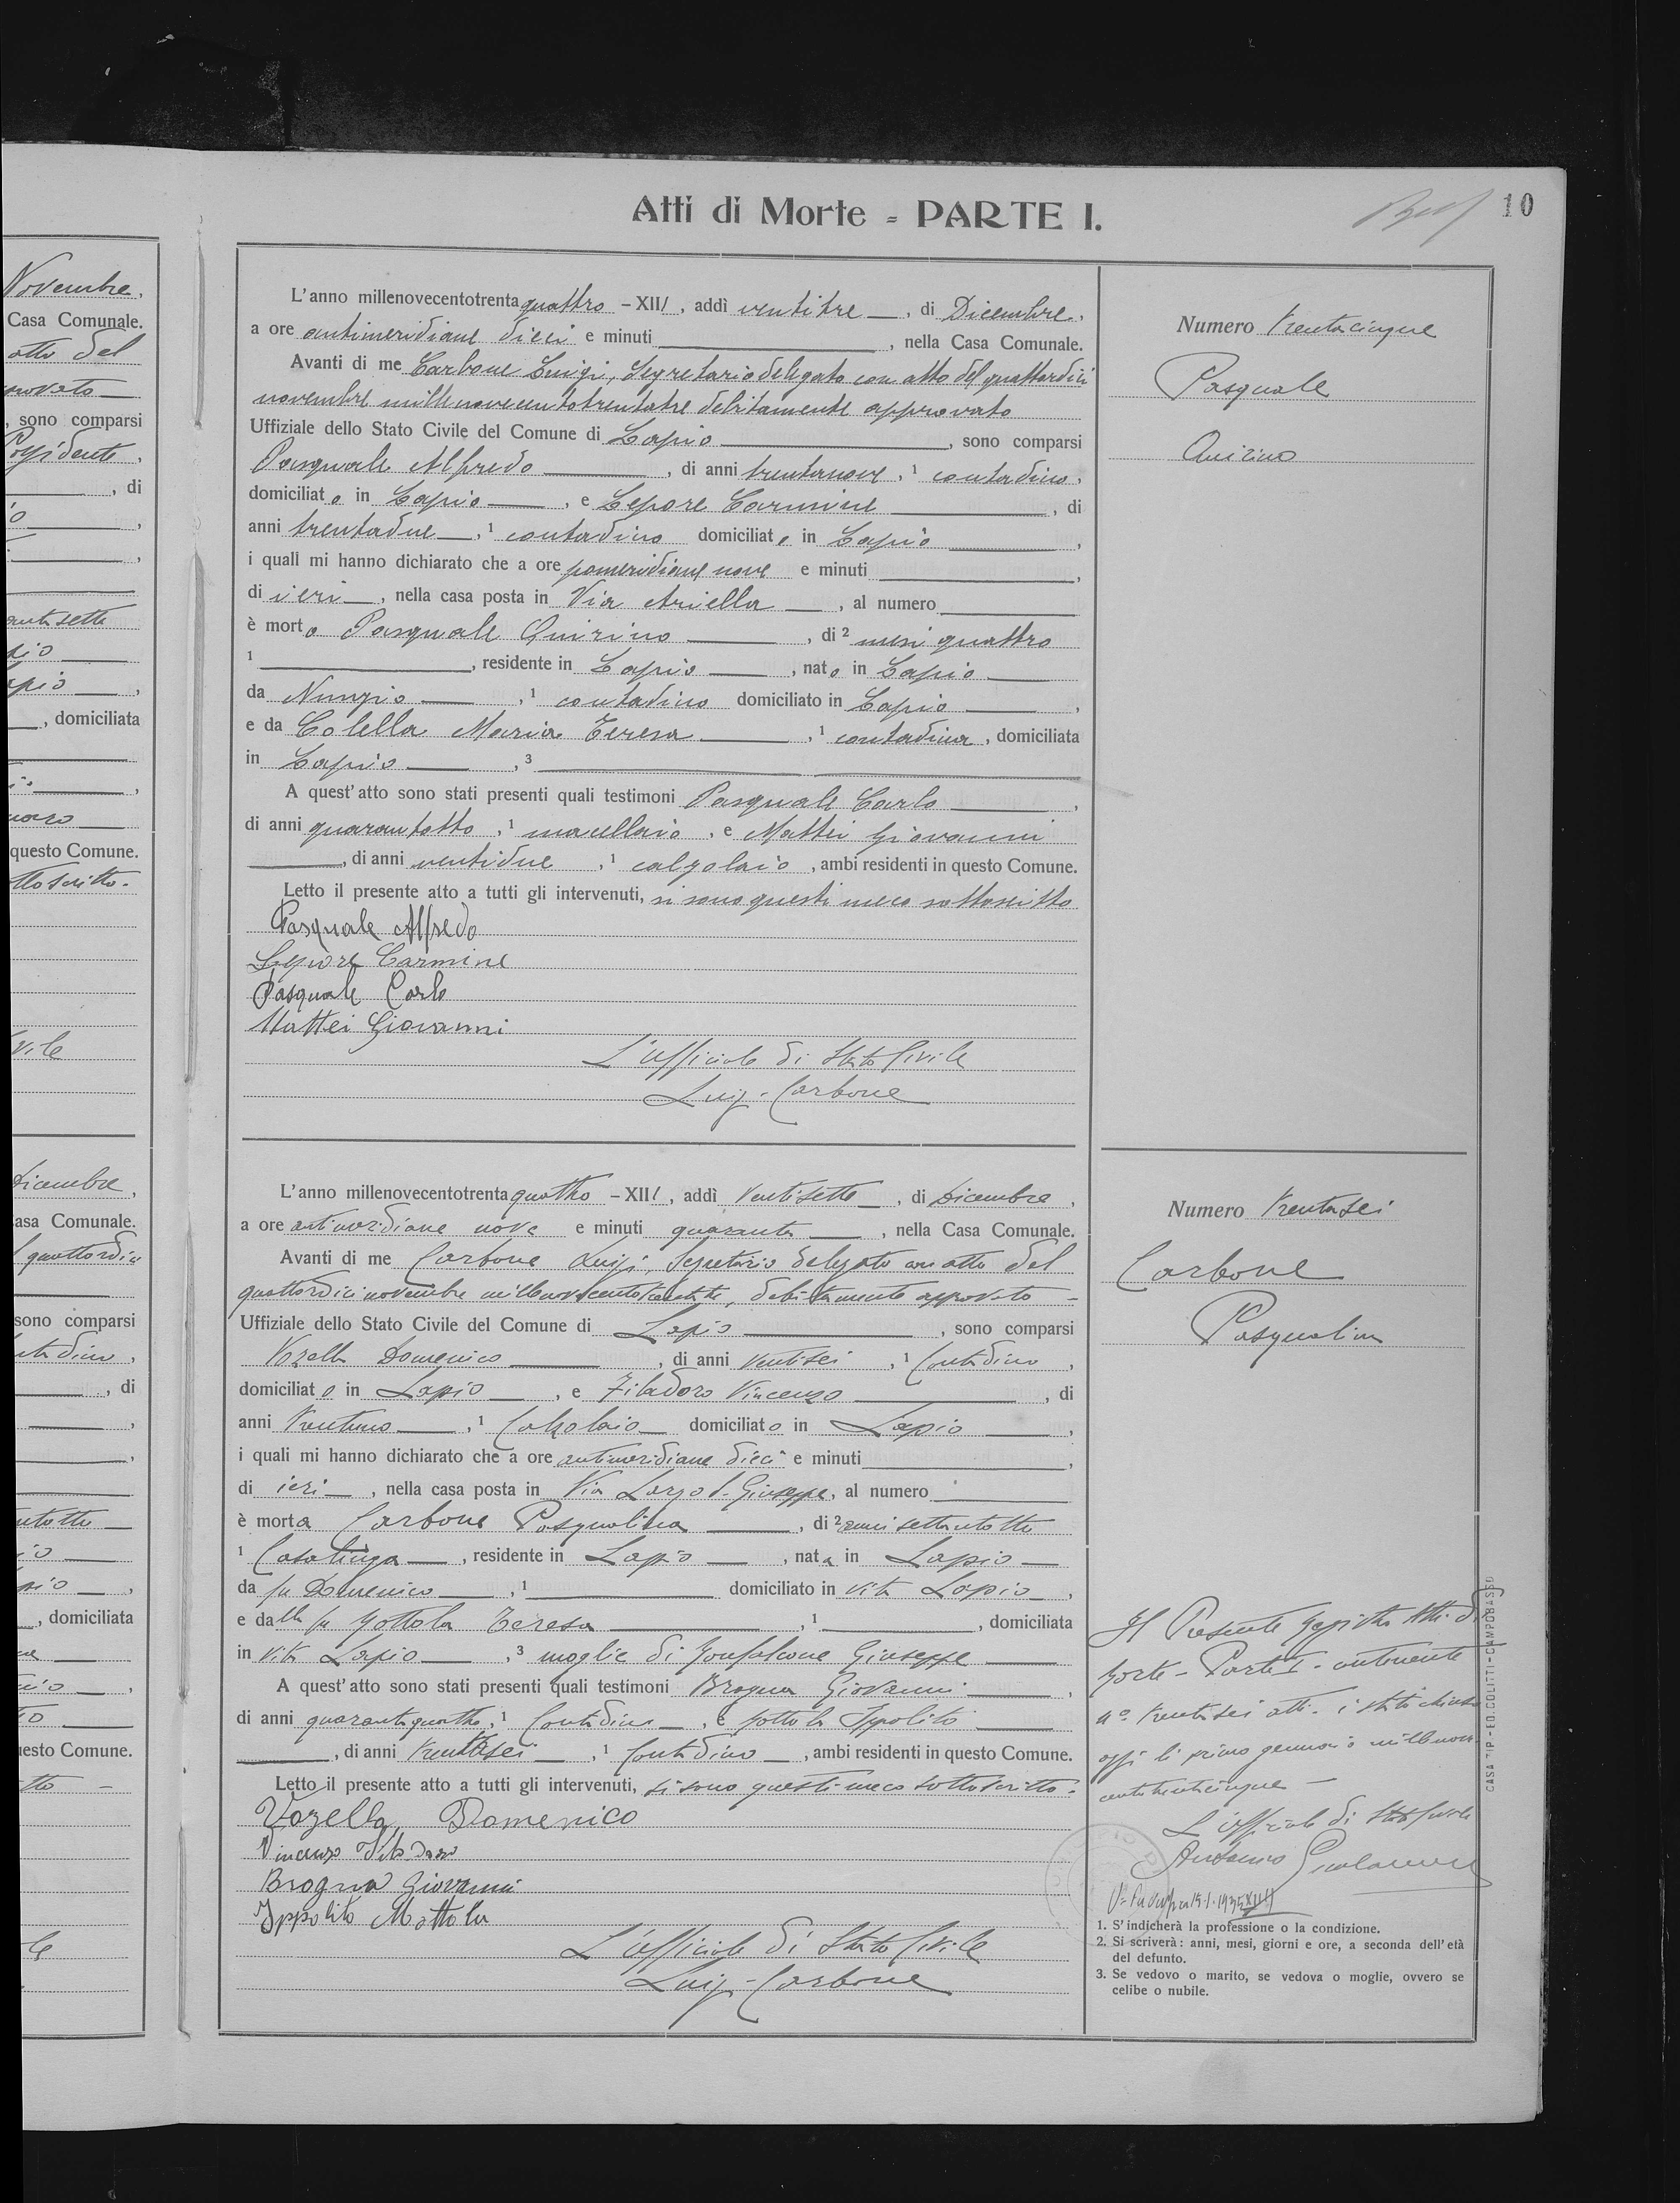 Novembre,
Casa Comunale.
atto del
provato
, sono comparsi
, di
antisette
pio
apio ,
, domiciliata
questo Comune.
ttoscritto.
vile
Dicembre,
asa Comunale.
quattordici
sono comparsi
ntadino,
, di
ntotto
pio ,
, domiciliata
uesto Comune.
Atti di Morte - PARTE I.
10
L'anno millenovecentotrenta quattro - XIII, addì ventitre , di Dicembre,
a ore antimeridiane dieci e minuti , nella Casa Comunale.
Avanti di me Carbone Luigi, Segretario delegato con atto del quattordici
novembre millenovecentotrentatre debitamente approvato
Uffiziale dello Stato Civile del Comune di Lapio , sono comparsi
Pasquale Alfredo , di anni trentanove, 1 contadino,
domiciliato in Lapio , e Lepore Carmine , di
anni trentadue , 1 contadino domiciliato in Lapio ,
i quali mi hanno dichiarato che a ore pomeridiane nove e minuti ,
di ieri , nella casa posta in Via Ariella , al numero
è morto Pasquale Quirino , di 2 mesi quattro
1 , residente in Lapio , nato in Lapio
da Nunzio , 1 contadino domiciliato in Lapio ,
e da Colella Maria Teresa , 1 contadina, domiciliata
in Lapio , 3
A quest'atto sono stati presenti quali testimoni Pasquale Carlo ,
di anni quarantotto, 1 macellaio, e Mattei Giovanni
, di anni ventidue , 1 calzolaio , ambi residenti in questo Comune.
Letto il presente atto a tutti gli intervenuti, si sono questi meco sottoscritto
Pasquale Alfredo
Lepore Carmine
Pasquale Carlo
Mattei Giovanni
L'ufficiale di Stato Civile
Luigi Carbone
Numero trentacinque
Pasquale
Quirino
L'anno millenovecentotrenta quattro - XIII, addì ventisette , di Dicembre,
a ore antimeridiane nove e minuti quaranta , nella Casa Comunale.
Avanti di me Carbone Luigi, Segretario delegato con atto del
quattordici novembre millenovecentotrentatre, debitamente approvato -
Uffiziale dello Stato Civile del Comune di Lapio , sono comparsi
Vozella Domenico , di anni ventisei , 1 Contadino ,
domiciliato in Lapio , e Filadoro Vincenzo , di
anni trentuno , 1 Calzolaio domiciliato in Lapio ,
i quali mi hanno dichiarato che a ore antimeridiane dieci e minuti ,
di ieri , nella casa posta in Via Largo S. Giuseppe, al numero
è morta Carbone Pasqualina , di 2 anni settantotto
1 Casalinga , residente in Lapio , nata in Lapio
da fu Domenico , 1 domiciliato in vita Lapio ,
e dalla fu Mottola Teresa , 1 , domiciliata
in vita Lapio , 3 moglie di Monfalcone Giuseppe
A quest'atto sono stati presenti quali testimoni Brogna Giovanni ,
di anni quarantaquattro, 1 Contadino , e Mottola Ippolito
, di anni trentasei , 1 Contadino , ambi residenti in questo Comune.
Letto il presente atto a tutti gli intervenuti, si sono questi meco sottoscritto.
Vozella Domenico
Vincenzo Filadoro
Brogna Giovanni
Ippolito Mottola
L'ufficiale di Stato Civile
Luigi Carbone
Numero trentasei
Carbone
Pasqualina
Il Presente Registro Atti di
Morte - Parte I - contenente
n° trentasei atti - è stato chiuso
oggi li primo gennaio millenove
centotrentacinque -
L'ufficiale di Stato Civile
Antonio
1. S'indicherà la professione o la condizione.
2. Si scriverà: anni, mesi, giorni e ore, a seconda dell'età
del defunto.
3. Se vedovo o marito, se vedova o moglie, ovvero se
celibe o nubile.
CASA TIP. ED. COLITTI - CAMPOBASSO